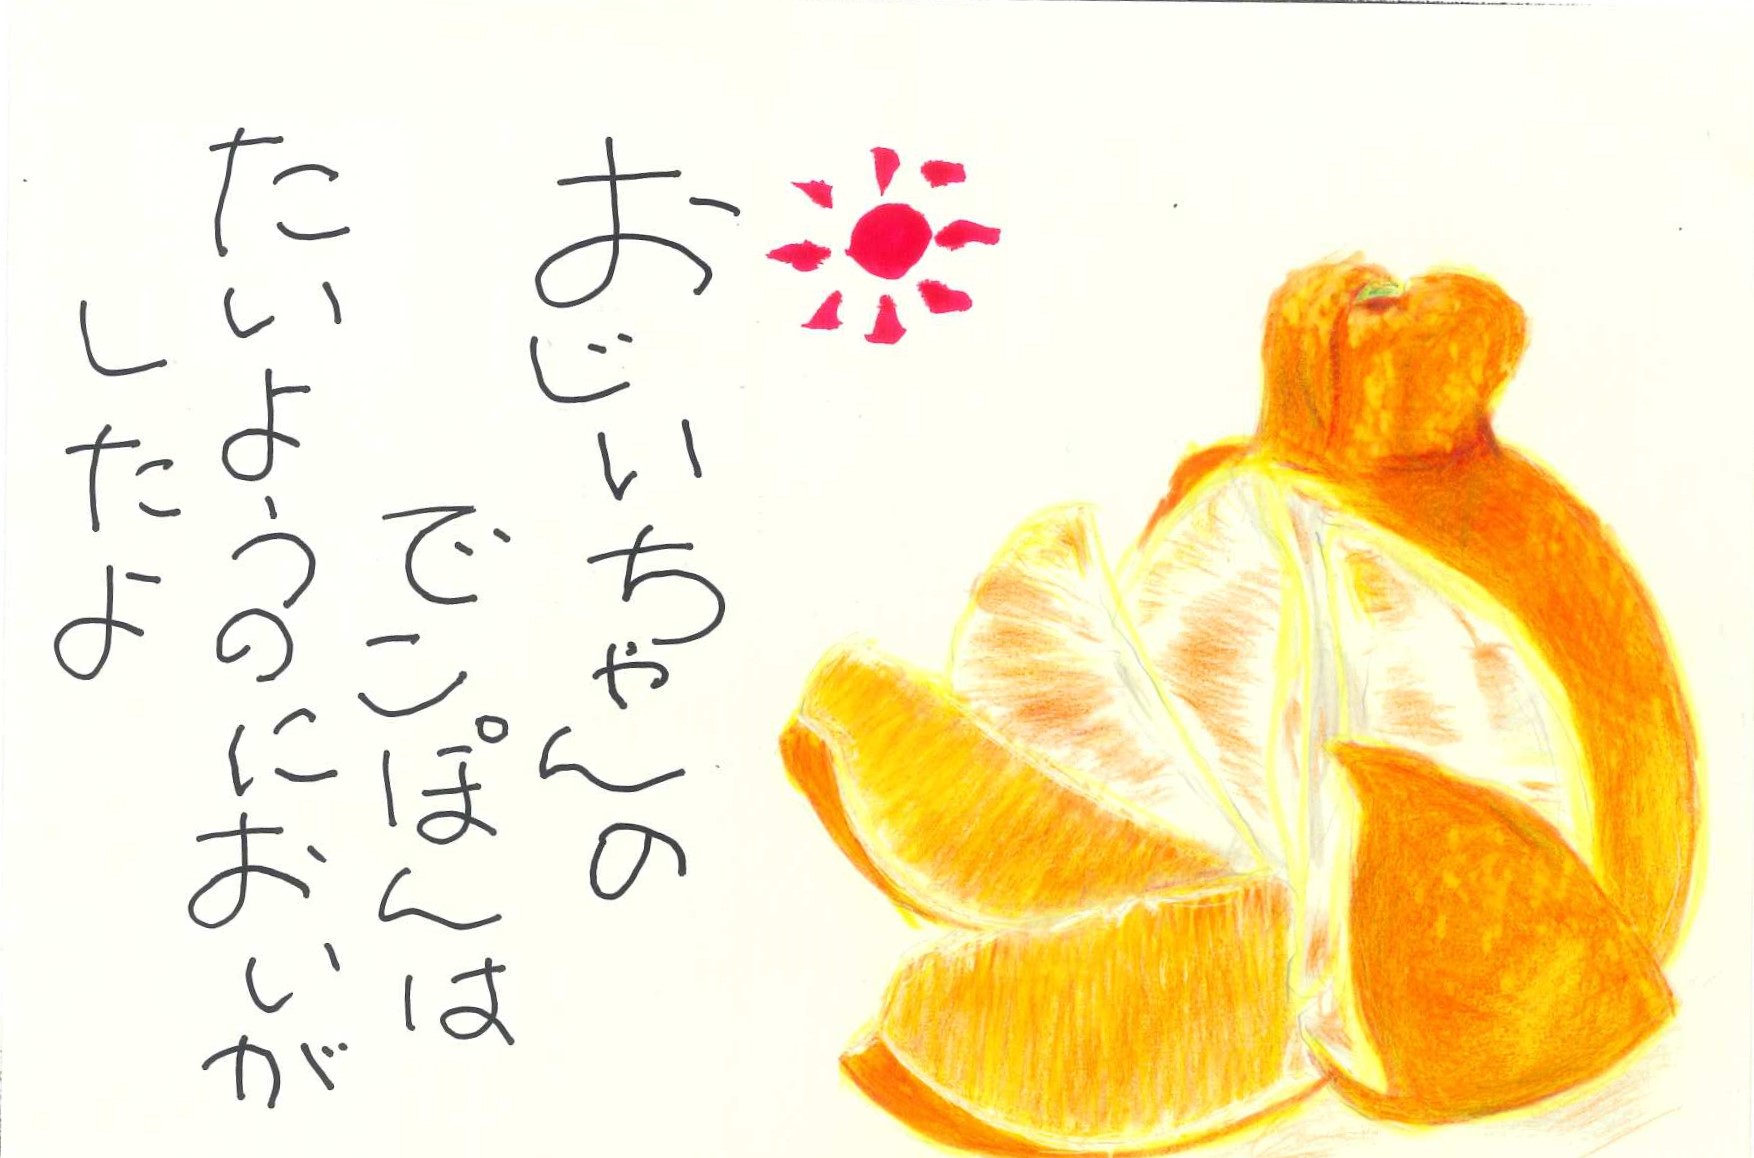 おじいちゃんの
でこぽんは
たいようのにおいが
したよ